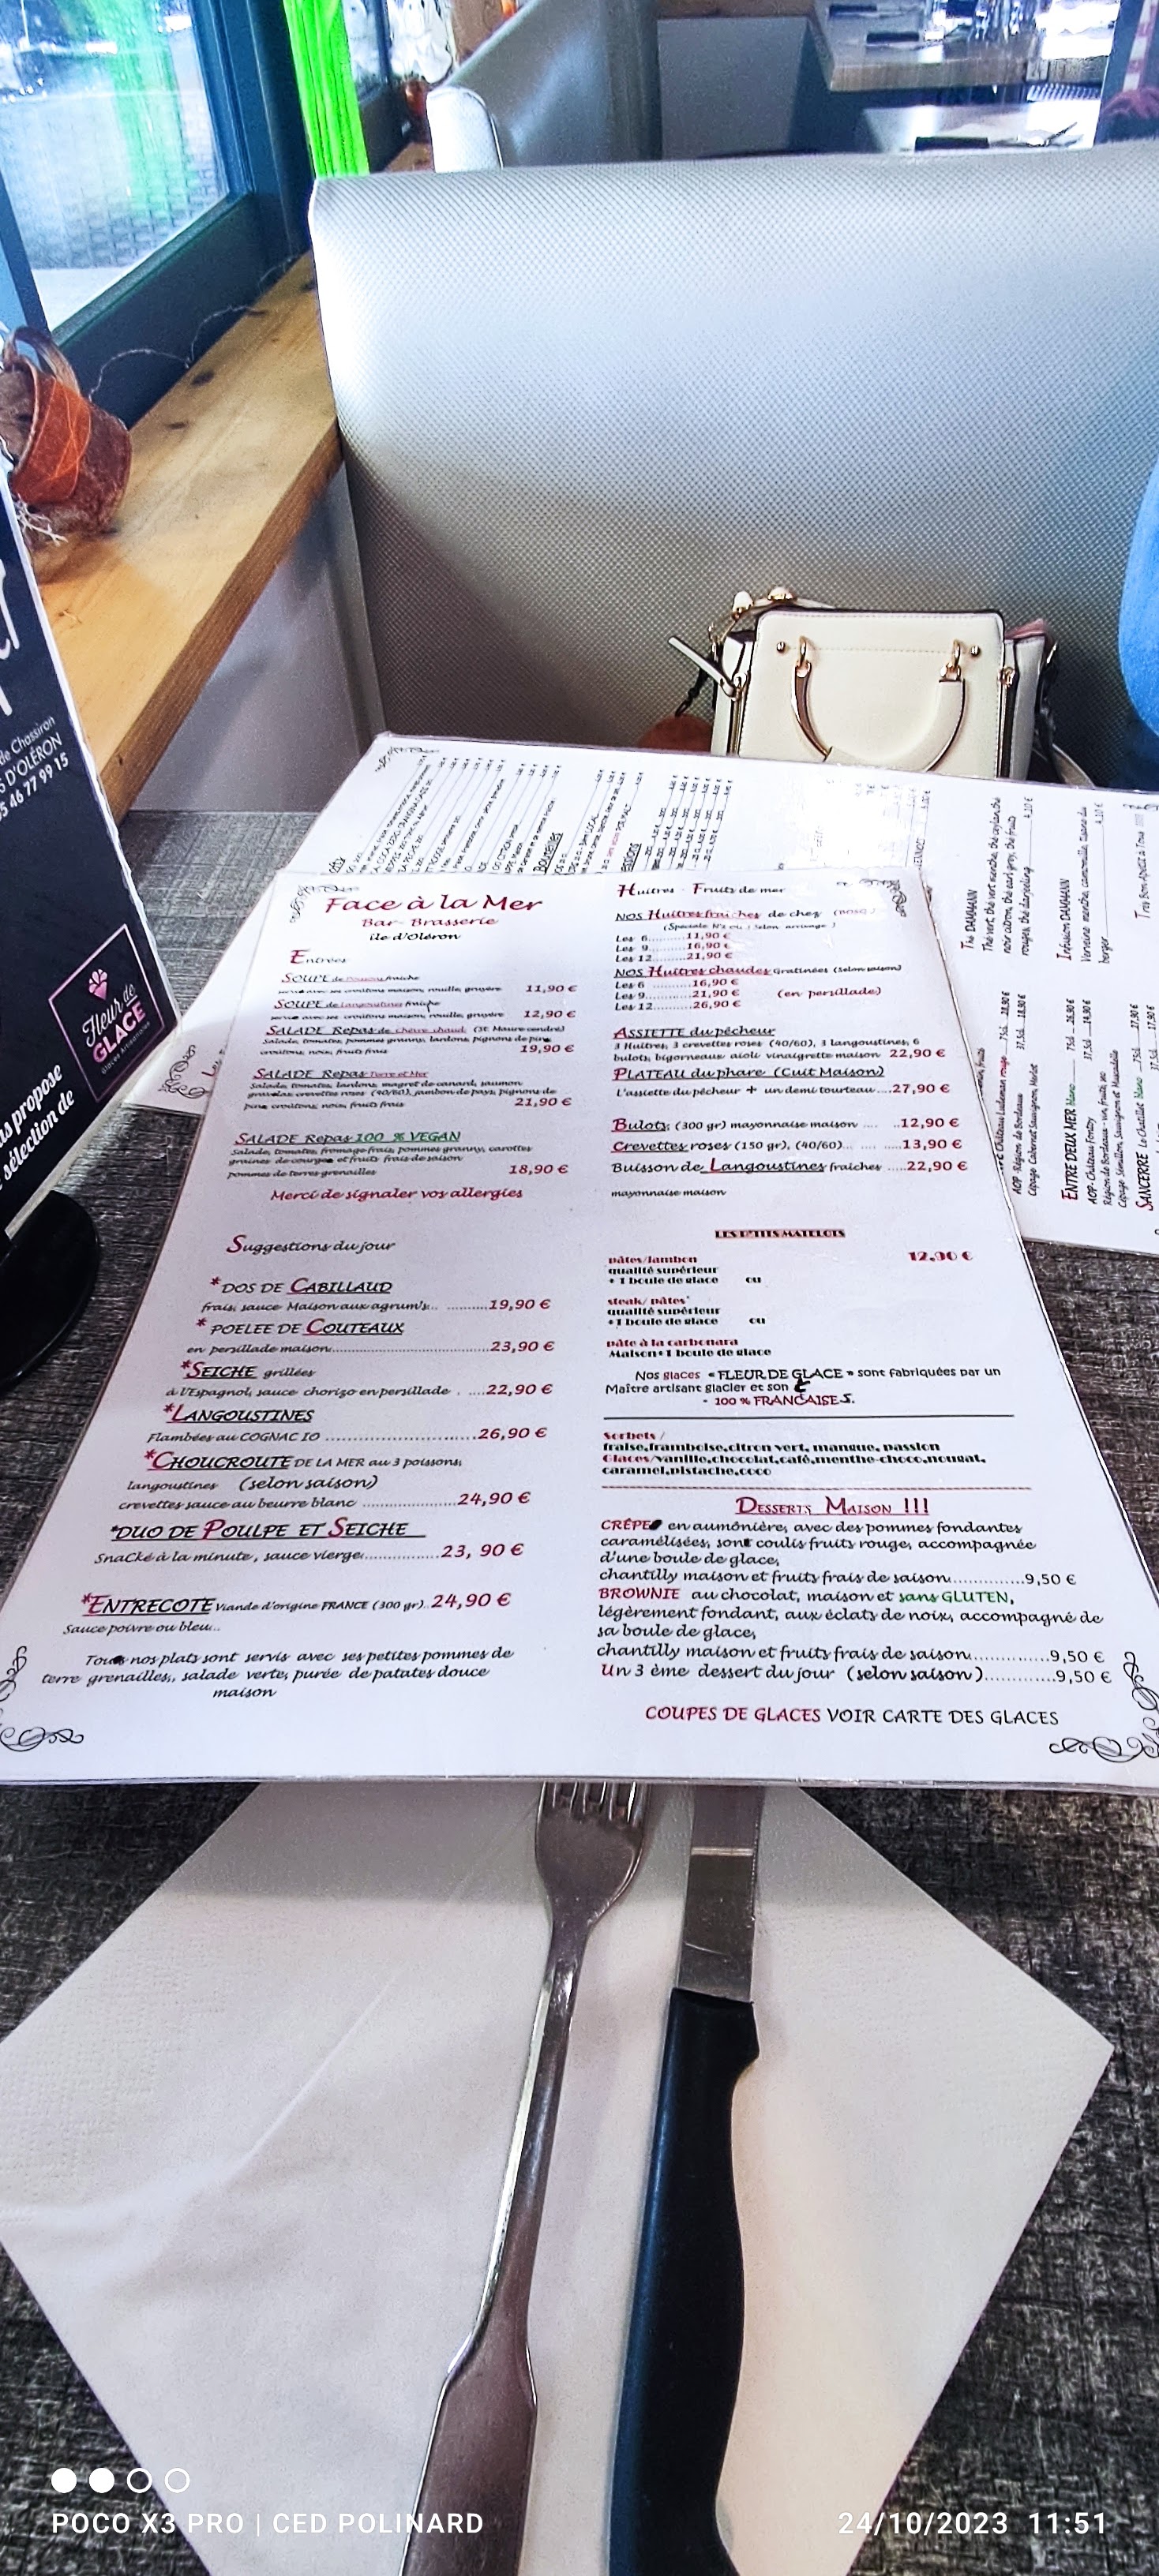 Face à la Mer
Bar- Brasserie
île d'Oléron
Entrées
SOUPE de Poissons fraîche
servie avec ses croûtons maison, rouille, gruyère 11,90 €
SOUPE de Langoustines fraîche
servie avec ses croûtons maison, rouille, gruyère 12,90 €
SALADE Repas de Chèvre chaud (St Maure cendré)
Salade, tomates, pommes granny, lardons, pignons de pins
croutons, noix, fruits frais 19,90 €
SALADE Repas Terre et Mer
Salade, tomates, lardons, magret de canard, saumon
gravelax crevettes roses (40/60), jambon de pays, pignons de
pins croutons, noix, fruits frais 21,90 €
SALADE Repas 100 % VEGAN
Salade, tomates, fromage frais, pommes granny, carottes
graines de courges et fruits frais de saison
pommes de terres grenailles 18,90 €
Merci de signaler vos allergies
Suggestions du jour
*DOS DE CABILLAUD
frais, sauce Maison aux agrum's... .........19,90 €
* POELEE DE COUTEAUX
en persillade maison.................................23,90 €
*SEICHE grillées
à l'Espagnol, sauce chorizo en persillade . ....22,90 €
*LANGOUSTINES
Flambées au COGNAC IO ..............................26,90 €
*CHOUCROUTE DE LA MER au 3 poissons,
langoustines (selon saison)
crevettes sauce au beurre blanc ..................24,90 €
*DUO DE POULPE ET SEICHE
SnaCké à la minute , sauce vierge...............23, 90 €
*ENTRECOTE Viande d'origine FRANCE (300 gr)..24,90 €
Sauce poivre ou bleu...
Tous nos plats sont servis avec ses petites pommes de
terre grenailles,, salade verte, purée de patates douce
maison
Huîtres - Fruits de mer
NOS Huîtres fraîches de chez
(Spéciale N°3 ou : Selon arrivage )
Les 6.........11,90 €
Les 9.........16,90 €
Les 12........21,90 €
NOS Huîtres chaudes Gratinées (Selon saison)
Les 6 .........16,90 €
Les 9..........21,90 € (en persillade)
Les 12.........26,90 €
ASSIETTE du pêcheur
3 Huîtres, 3 crevettes roses (40/60), 3 langoustines, 6
bulots, bigorneaux aïoli vinaigrette maison 22,90 €
PLATEAU du phare (Cuit Maison)
L'assiette du pêcheur + un demi tourteau....27,90 €
Bulots, (300 gr) mayonnaise maison .... ....12,90 €
Crevettes roses (150 gr), (40/60)... ..........13,90 €
Buisson de Langoustines fraîches .....22,90 €
mayonnaise maison
LES P'TITS MATELOTS
pâtes/Jambon 12,90 €
qualité supérieur
+ 1 boule de glace ou
steak/ pâtes'
qualité supérieur
+1 boule de glace ou
pâte à la carbonara
Maison+ 1 boule de glace
Nos glaces « FLEUR DE GLACE » sont fabriquées par un
Maître artisant glacier et son t
- 100 % FRANCAISES.
Sorbets /
fraise,framboise,citron vert, mangue, passion
Glaces/vanille,chocolat,café,menthe-choco,nougat,
caramel,pistache,coco
DESSERTS MAISON !!!
CRÊPE en aumônière, avec des pommes fondantes
caramélisées, sont coulis fruits rouge, accompagnée
d'une boule de glace,
chantilly maison et fruits frais de saison...............9,50 €
BROWNIE au chocolat, maison et sans GLUTEN,
légèrement fondant, aux éclats de noix, accompagné de
sa boule de glace,
chantilly maison et fruits frais de saison...............9,50 €
Un 3 ème dessert du jour (selon saison)..............9,50 €
COUPES DE GLACES VOIR CARTE DES GLACES
de Chassiron
D'OLÉRON
5 46 77 99 15
Fleur de
GLACE
Glaces Artisanales
propose
sélection de
Thé DAMMANN
Infusion DAMMANN
Région de Bordeaux
Cépage Cabernet Sauvignon, Merlot
ENTRE DEUX MER blanc
SANCERRE
POCO X3 PRO | CED POLINARD
24/10/2023 11:51